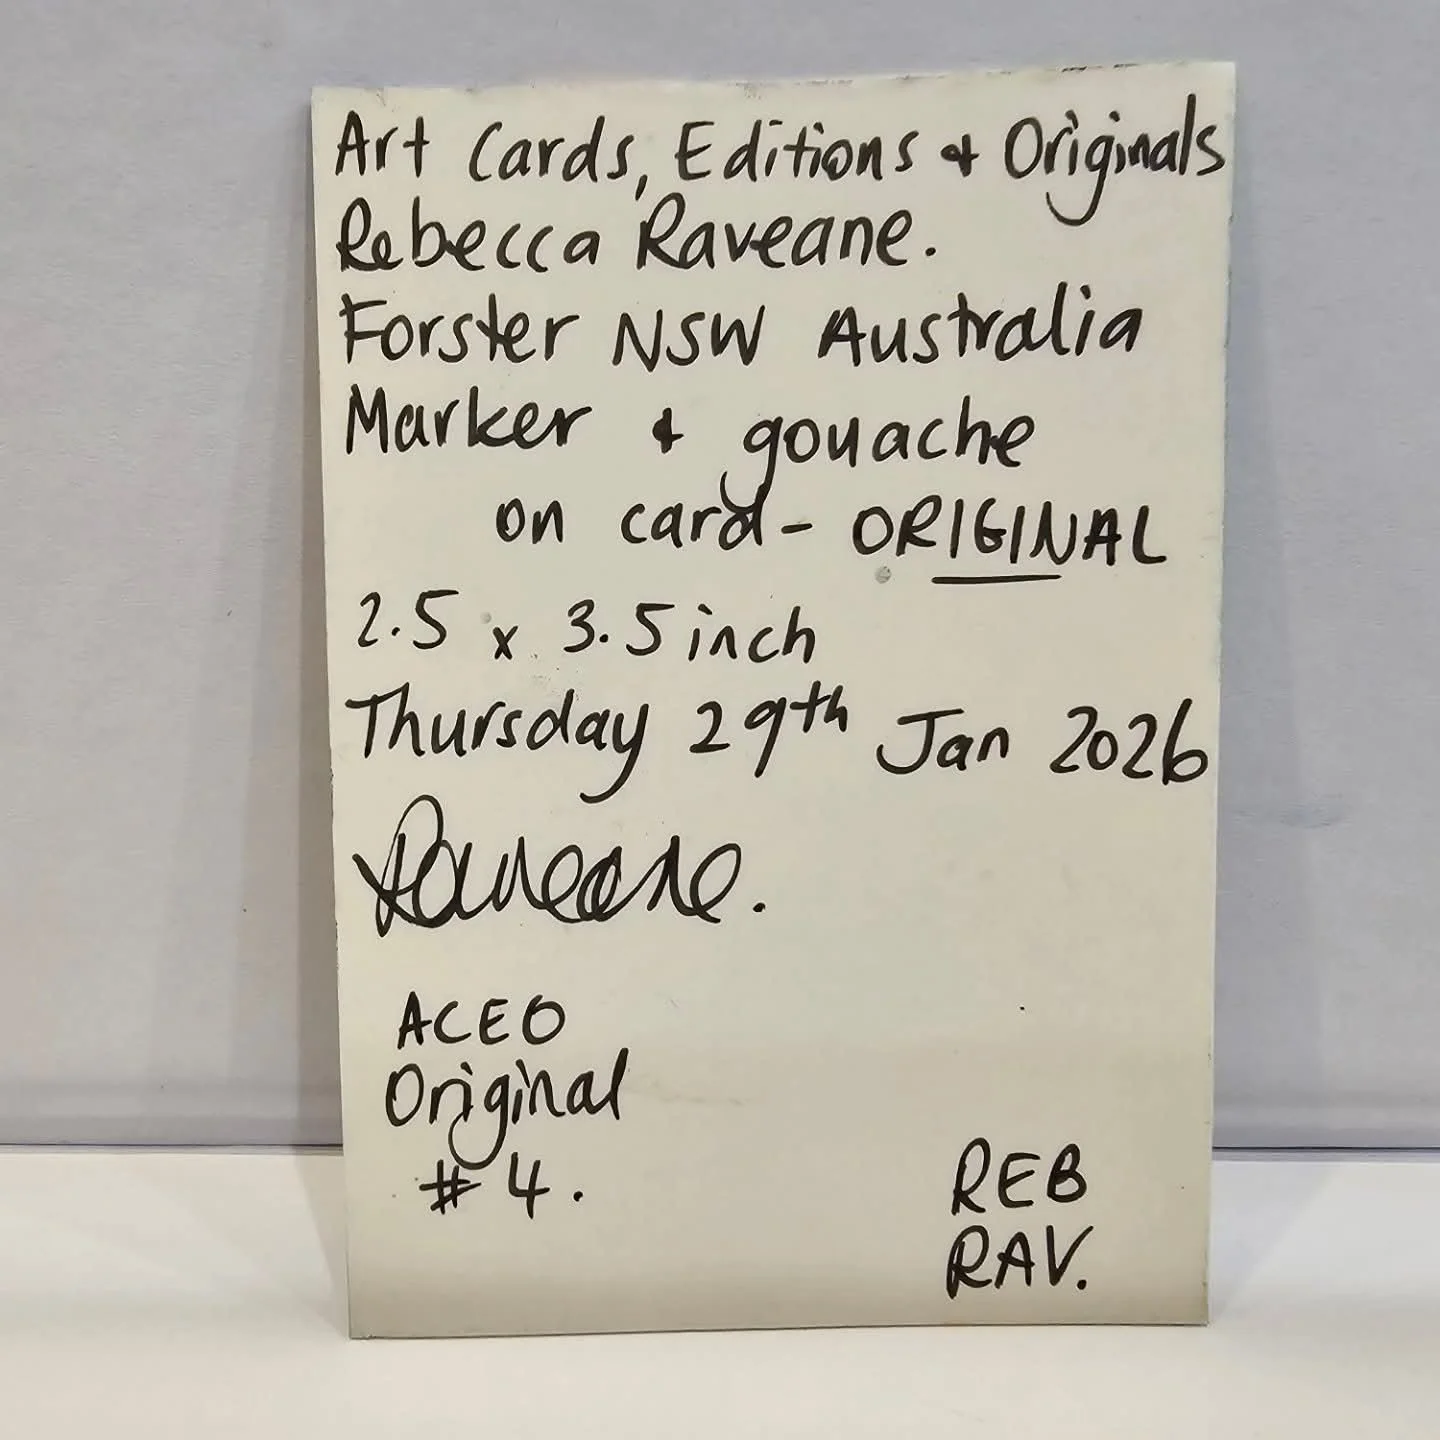 Art Cards, Editions & Originals
Rebecca Raveane.
Forster NSW Australia
Marker & gouache
on card - ORIGINAL
2.5 x 3.5 inch
Thursday 29th Jan 2026
Raveane.
ACEO
Original
#4.
REB
RAV.